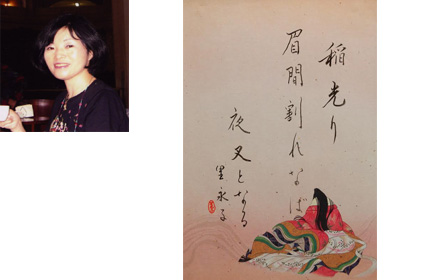 稲光り
眉間割れなば
夜叉となる
里永子